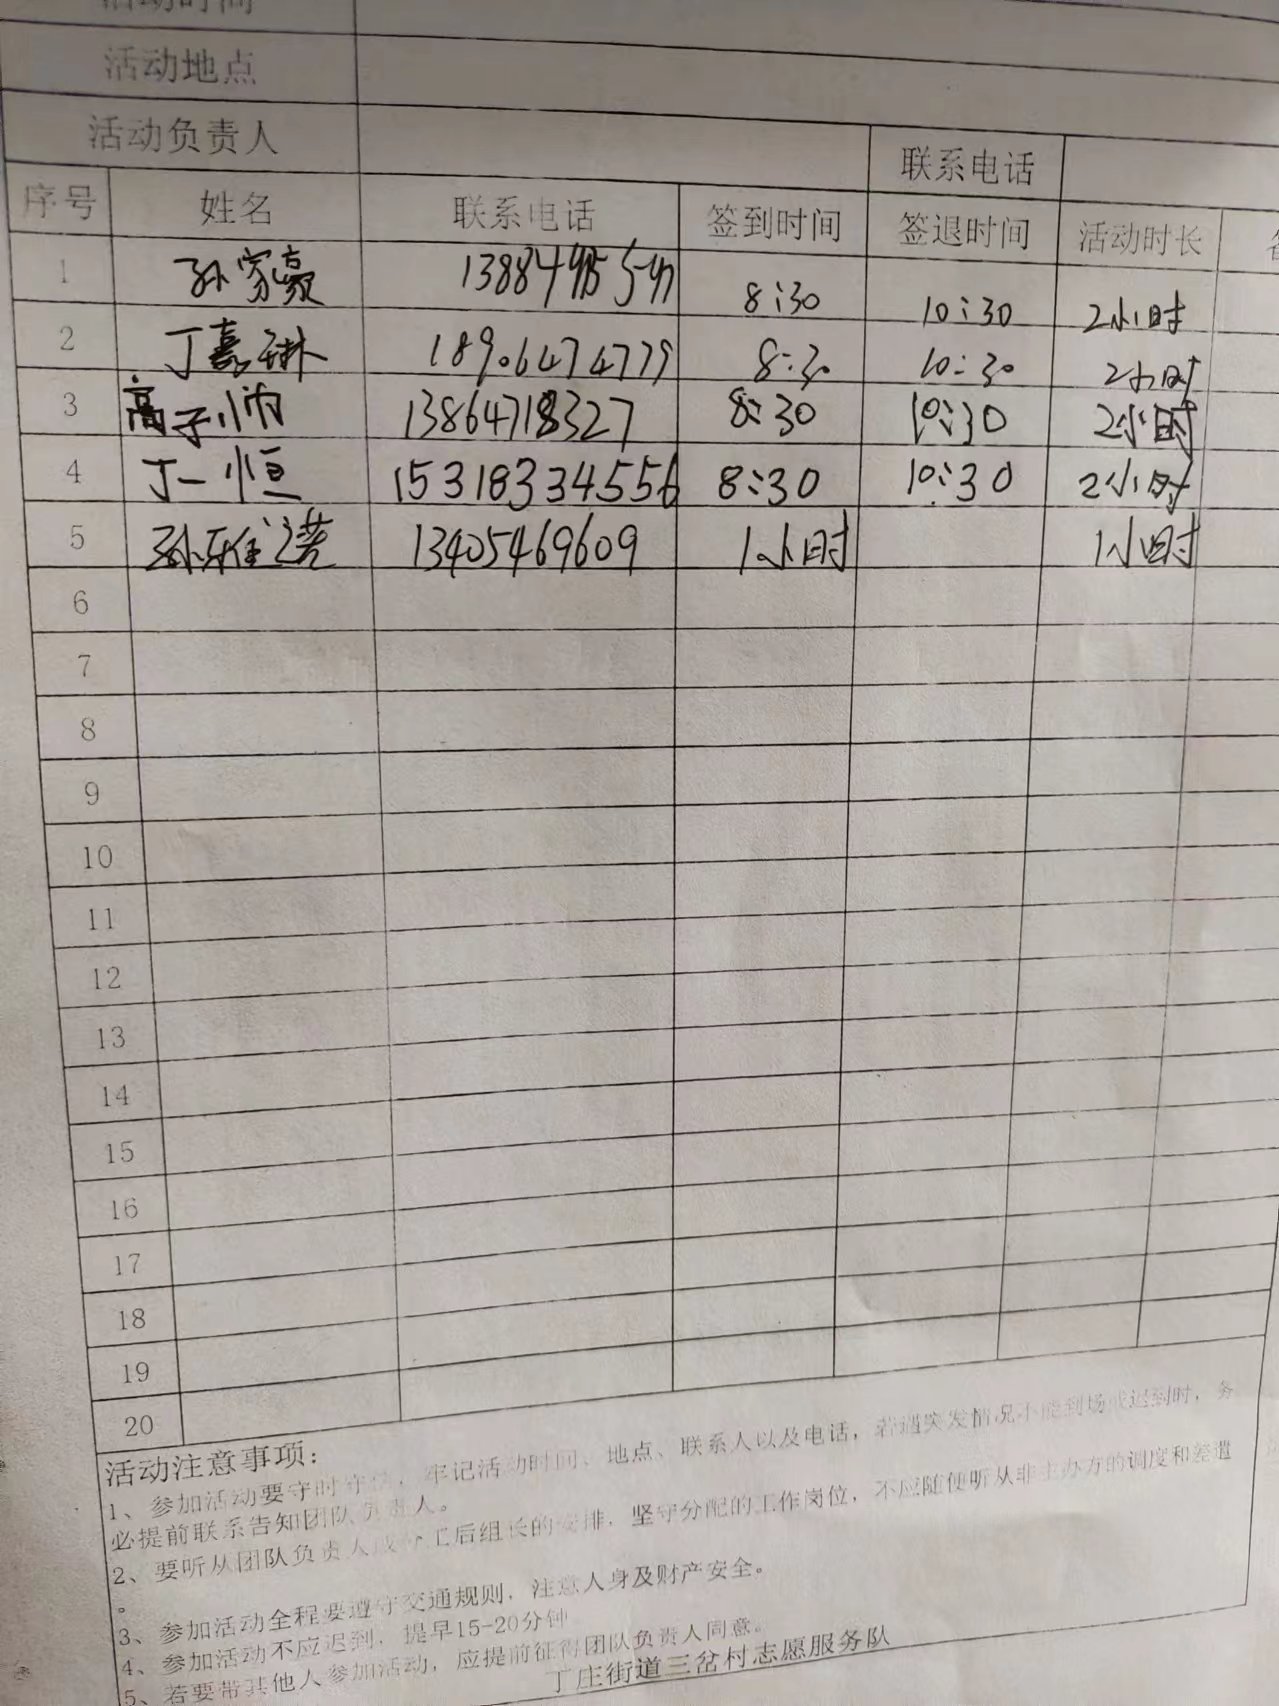 活动时间
活动地点
活动负责人 联系电话
序号 姓名 联系电话 签到时间 签退时间 活动时长
1 孙家豪 8:30 10:30 2小时
2 丁嘉琳 18906474779 8:30 10:30 2小时
3 高子 13864718327 8:30 10:30 2小时
4 丁一恒 15318334556 8:30 10:30 2小时
5 孙雅诺 13405469609 1小时 1小时
6
7
8
9
10
11
12
13
14
15
16
17
18
19
20
活动注意事项：
1、参加活动要守时守信，牢记活动时间、地点、联系人以及电话，若遇突发情况不能到场或迟到时，务
必提前联系告知团队负责人。
2、要听从团队负责人或分工后组长的安排，坚守分配的工作岗位，不应随便听从非主办方的调度和差遣
。
3、参加活动全程要遵守交通规则，注意人身及财产安全。
4、参加活动不应迟到，提早15-20分钟
5、若要带其他人参加活动，应提前征得团队负责人同意。
丁庄街道三岔村志愿服务队